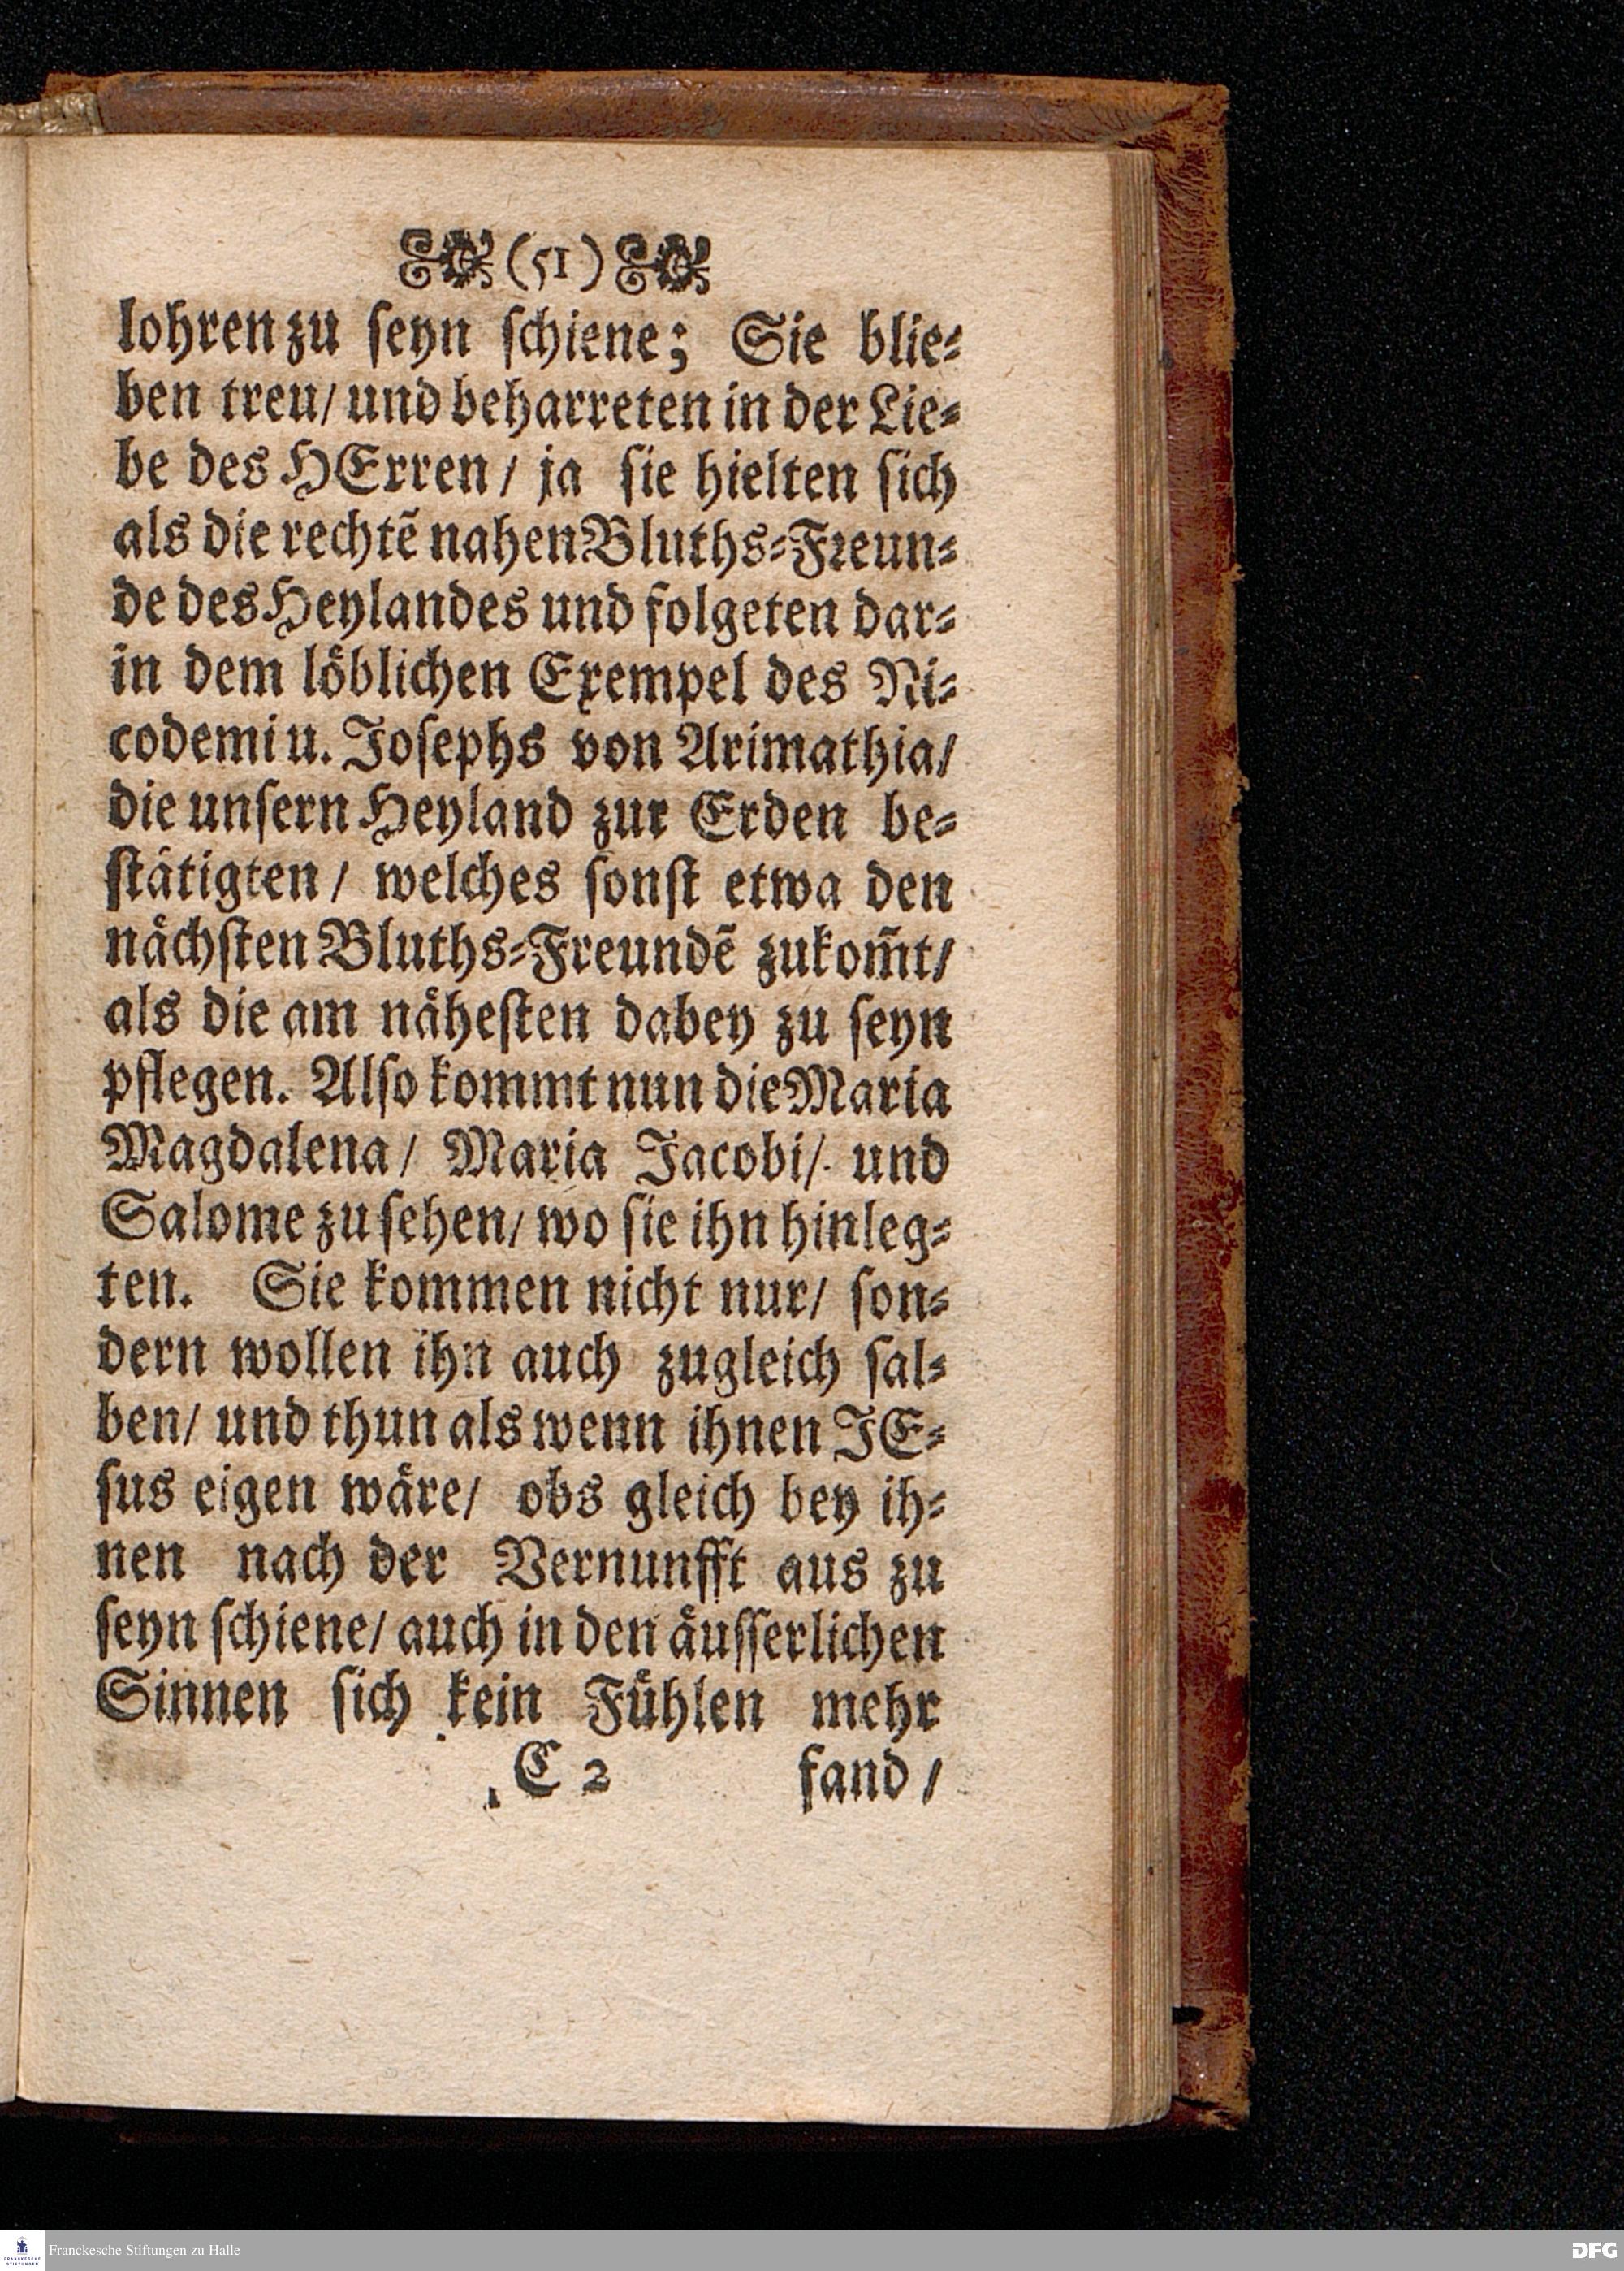 (51)
lohren zu ſeyn ſchiene; Sie blie⸗
ben treu/ und beharreten in der Lie⸗
be des HErren/ ja ſie hielten ſich
als die rechtẽ nahen Bluths⸗Freun⸗
de des Heylandes und folgeten dar⸗
in dem loͤblichen Exempel des Ni⸗
codemi u. Joſephs von Arimathia/
die unſern Heyland zur Erden be⸗
ſtaͤtigten/ welches ſonſt etwa den
naͤchſten Bluths⸗Freundẽ zukom̃t/
als die am naͤheſten dabey zu ſeyn
pflegen. Alſo kommt nun die Maria
Magdalena/ Maria Jacobi/ und
Salome zu ſehen/ wo ſie ihn hinleg⸗
ten. Sie kommen nicht nur/ ſon⸗
dern wollen ihn auch zugleich ſal⸗
ben/ und thun als wenn ihnen JE⸗
ſus eigen waͤre/ obs gleich bey ih⸗
nen nach der Vernunfft aus zu
ſeyn ſchiene/ auch in den aͤuſſerlichen
Sinnen ſich kein Fuͤhlen mehr
C 2 fand/
Franckesche Stiftungen zu Halle
DFG